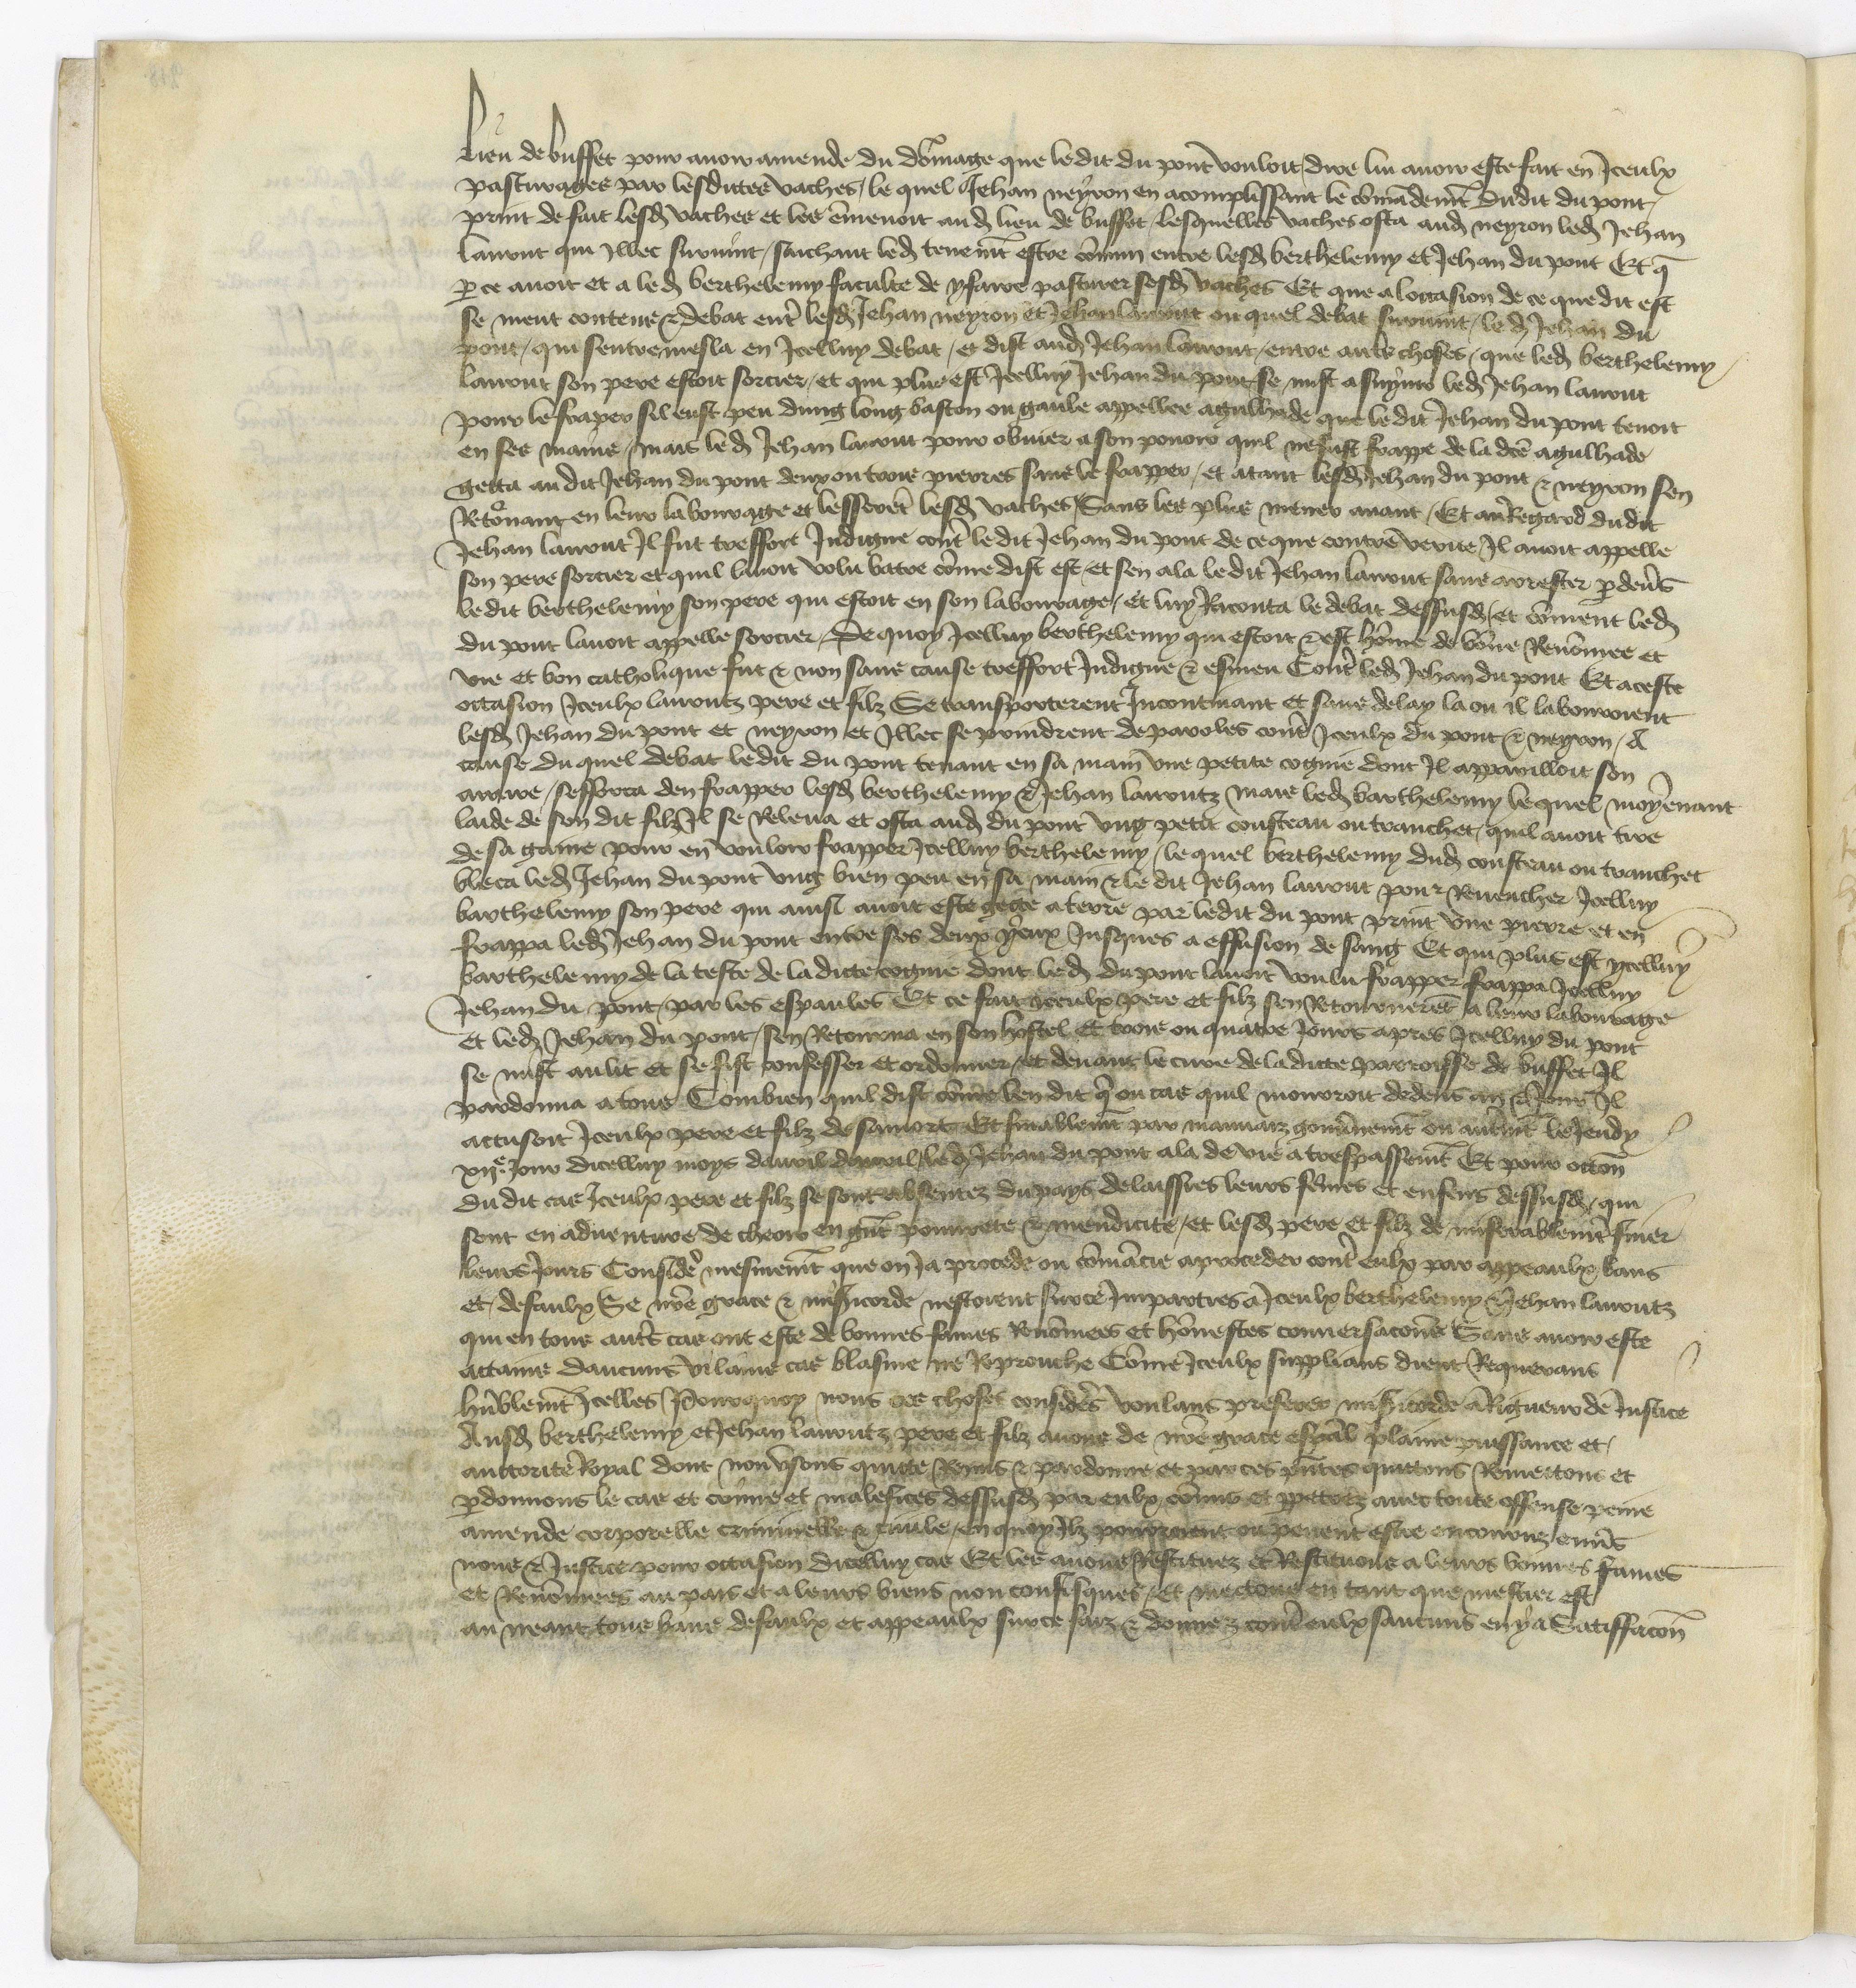 lieu de buffet pour avoir amende du dommage que ledit du pont vouloit dire lui avoir este fait en Iceulx
pasturages par lesdittes vaches, lequel Jehan neyron en acomplissant le comādemt dudit du pont
print de fait lesd vaches et les ēmenoit aud lieu de buffet, lesquelles vaches osta aud neyron led Jehan
laurout qui Illec survint, saichant led tenemt estre cōmun entre lesd berthelemy et Jehan du pont Et q̄
p ce avoit et a led berthelemy faculte de y faire pasturer sesd vaches Et que a loccasion de ce que dit est
se meut contens & debat entre lesd Jehan neyron et Jehan laurout ou quel debat survint led Jehan du
pont, qui sentremesla en Icelluy debat, et dist aud Jehan laurout, entre autres choses, que led berthelemy
laurout son pere estoit sorcier, et qui plus est Icelluy Jehan du pont se mist a suyvir led Jehan laurout
pour le fraper sil eust peu dung long baston ou gaule appellee agulhade que ledit Jehan du pont tenoit
en ses mains, mais led Jehan laurout pour obvier a son pouoir quil ne fust frappe de la dcē agulhade
getta audit Jehan du pont deux ou trois pierres sans le frapper, et atant lesd Jehan du pont & neyron sen
Retōnant en leur labourage et lesserēt lesd vaches Sans les plus mener avant, Et au Regard dudit
Jehan laurout Il fut tresfort Indigne contre ledit Jehan du pont de ce que contre verite Il avoit appelle
son pere sorcier et quil lavoit volu batre cōme dist est, et sen ala ledit Jehan laurout sans arrester p devs
ledit berthelemy son pere qui estoit en son labourage, et luy Raconta le debat dessusd, et cōment led
du pont lavoit appelle sorcier, De quoy Icelluy berthelemy qui estoit & est hōme de bōne Renōmee et
vie et bon catholique fut & non sans cause tresfort Indigne & esmeu Contre led Jehan du pont Et a ceste
occasion Iceulx lauroutz pere et filz Se transporterent Incontinant et sans delay la ou il labouroient
lesd Jehan du pont et neyron et Illec se prindrent de paroles contre Iceulx du pont & neyron, A
cause du quel debat ledit du pont tenant en sa main une petite cognie dont Il apparilloit son
araire, sefforca den frapper lesd berthelemy & Jehan lauroutz mais led barthelemy lequel moyennant
laide de son dit filz Il se Releva et osta aud du pont ung petit cousteau ou tranchet, quil avoit tire
de sa gaine pour en vouloir frapper Icelluy berthelemy, lequel berthelemy dud cousteau ou tranchet
bleca led Jehan du pont ung bien peu en sa main & ledit Jehan laurout pour Revencher Icelluy
barthelemy son pere qui ainsi avoit este gecte a terre par ledit du pont print une pierre et en
frappa led Jehan du pont entre ses deux yeux Jusques a effusion de sang Et qui plus est ycelluy
barthelemy de la teste de la dicte cognie dont led du pont lavoit voulu frapper frappa Icelluy
Jehan du pont par les espaules Et ce fait Iceulx pere et filz sen Retournerēt a leur labourage
Et led Jehan du pont sen Retourna en son hostel Et trois ou quatre Jours apres Icelluy du pont
se mist au lit et se fist confesser et ordonner, et devant le cure de ladicte parroisse de buffet Il
pardonna a tous Combien quil dist cōme len dit q̄ ou cas quil mourroit dedens an & Jour Il
accusoit Iceulx pere et filz de sa mort Et finablemt par mauvaiz gouvernemt ou autremt le Jeudy
xije Jour dicelluy moys davril led Jehan du pont ala de vie a trespassemt Et pour occōn
du dit cas Iceulx pere et filz se sont absentez du pays delaissies leurs fēmes et enfens dessusd, qui
sont en adventure de cheoir en gūt pouvrete & mendicite, et lesd pere et filz de miserablemt finer
leurs Jours Considere mesmemt que on Ja procede ou cōmācie a proceder contre eulx par appeaulx bans
et, defaulx Se nrē grace & misicorde nestoient sur ce Imparties a Iceulx berthelemy & Jehan lauroutz
qui en tous autres cas ont este de bonnes fames Renōmees et hōnestes conversacōns Sans avoir este
attains daucuns vilains cas blasme ne Reprouche Cōme Iceulx supplians dient Requerans
hūblemt Icelles Pourquoy nous ces choses considerees voulans preferer misicorde a Rigueur de Justice
Ausd berthelemy et Jehan lauroutz pere et filz avons de nrē grace espāl plaine puissance et,
auctorite Royal dont nous usons quicte Remis & pardonne et par ces pñtes quictons Remectons et
pdonnons le cas et crime et malefices dessusd par eulx cōmis et ppetrez avec toute offense peine
amende corporelle criminelle & civile, en quoy Ilz pourroient ou pevent estre encourruz envs
nous & Justice pour occasion dicelluy cas Et les avons Restituez et Restituons a leurs bonnes fames
et Renōmees au pais et a leurs biens non confisquez, Et mectons en tant que mestier est
au neant tous bans defaulx et appeaulx sur ce faiz & donnez contre eulx saucuns en y a Satiffacōn